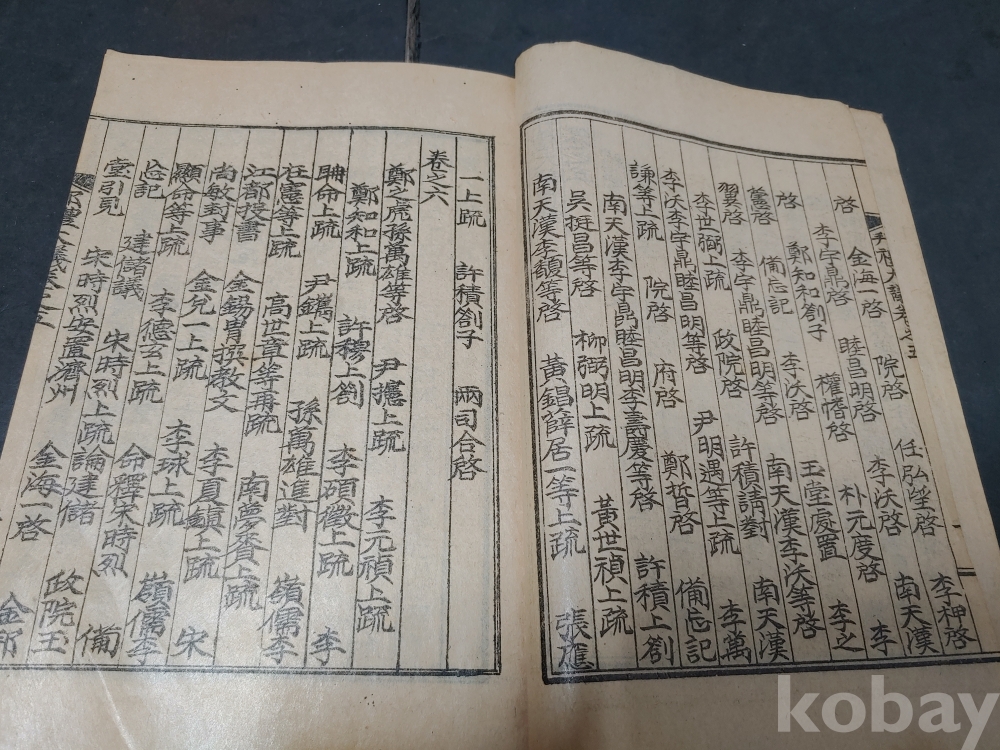 李柙啓
啓 金海一啓 院啓 任弘望啓 南天漢
李宇鼎啓 睦昌明啓 李沃啓 李
啓 鄭知和劄子 權愭啓 朴元度啓 李之
憲啓 備忘記 李沃啓 玉堂處置 南天漢李沃等啓
翼啓 李宇鼎睦昌明等啓 許積請對 南天漢
李世弼上疏 政院啓 尹明遇等上疏 李萬
李沃李宇鼎睦昌明等啓 鄭哲啓 備忘記
謙等上疏 院啓 府啓 許積上劄
南天漢李宇鼎睦昌明李壽慶等啓
吳挺昌等啓 柳弼明上疏 黃世禎上疏
南天漢李馥等啓 黃錩薛居一等上疏 張應
一上疏 許積劄子 兩司合啓
卷之六
鄭之虎孫萬雄等啓 尹攇上疏 李元禎上疏
鄭知和上疏 許穆上劄 李碩徵上疏
聃命上疏 尹鑴上疏 孫萬雄進對 李
在憲等上疏 高世章等再疏 嶺儒李
江都投書 金錫胄撰敎文 南夢賚上疏
尙敏封事 金兌一上疏 李夏鎭上疏
顯命等上疏 李德玄上疏 李球上疏 宋
忘記 建儲議 宋時烈上疏論建儲 命釋宋時烈 嶺儒李
堂引見 宋時烈安置濟州 金海一啓 備
政院玉
kobay